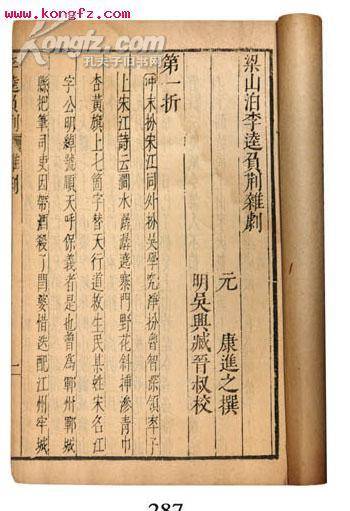 www.kongfz.com
www.kongfz.com
孔夫子旧书网
梁山泊李逵負荊雜劇
元 康進之撰
明吳興臧晉叔校
第一折
沖末扮宋江同外扮吳學究淨扮魯智深領卒子
上宋江詩云澗水潺潺遶寨門野花斜插滲青巾
杏黃旗上七箇字替天行道救生民某姓宋名江
字公明綽號順天呼保義者是也曾爲鄆州鄆城
縣把筆司吏因帶酒殺了閻婆惜迭配江州牢城
李逵負荊 雜劇 一
287